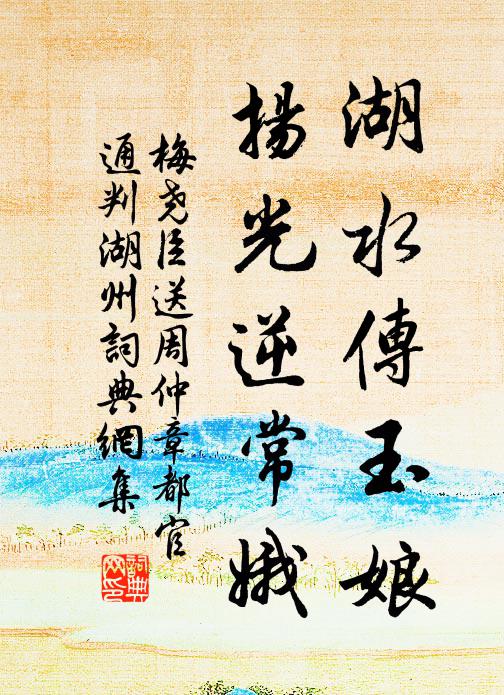 湖水傳玉娘
揚光逆常娥
梅堯臣送周仲章都官
通判湖州詞典網集
詞典
网印